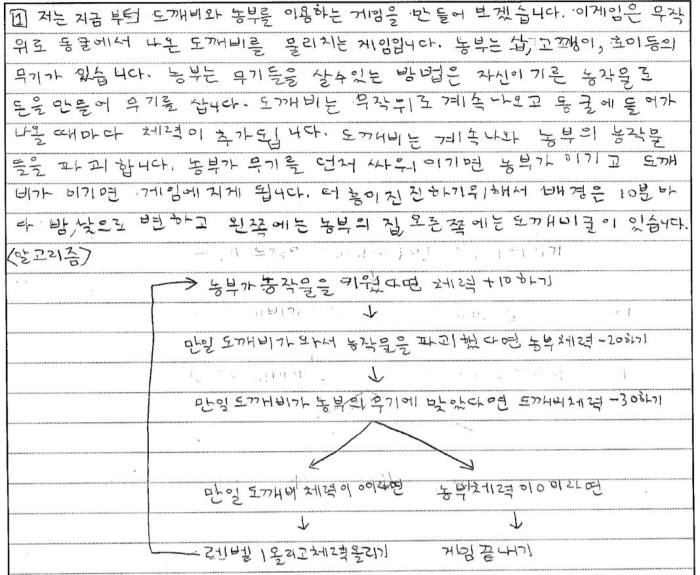 1 저는 지금 부터 도깨비와 농부를 이용하는 게임을 만들어 보겠습니다. 이게임은 무작
위로 동굴에서 나온 도깨비를 물리치는 게임입니다. 농부는 삽, 고깽이, 호미등의
무기가 있습니다. 농부는 무기들을 살수있는 방법은 자신이 기른 농작물로
돈을 만들어 무기를 삽니다. 도깨비는 무작위로 계속나오고 동굴에 들어가
나올 때마다 체력이 추가됩니다. 도깨비는 계속나와 농부의 농작물
들을 파괴합니다. 농부가 무기를 던져 싸워 이기면 농부가 이기고 도깨
비가 이기면 게임에 지게 됩니다. 더 흥미진진하기위해서 배경은 10분마
다 밤,낮으로 변하고 왼쪽에는 농부의 집 오른쪽에는 도깨비굴이 있습니다.
<알고리즘>
농부가 농작물을 키웠다면 체력 +10하기
만일 도깨비가 와서 농작물을 파괴했다면 농부체력 -20하기
만일 도깨비가 농부의 무기에 맞았다면 도깨비체력 -30하기
만일 도깨비 체력이 0이라면 농부체력이 0이라면
렌벨 1올리고체력올리기 게임 끝내기